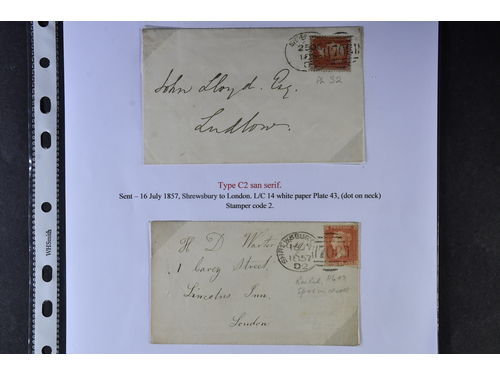 John Lloyd. Esq.
Ludlow.
Type C2 san serif.
Sent – 16 July 1857, Shrewsbury to London. L/C 14 white paper Plate 43, (dot on neck)
Stamper code 2.
SHREWSBURY
1857
D2
H D
1 Carey Street,
Lincolns Inn,
London
WHSmith